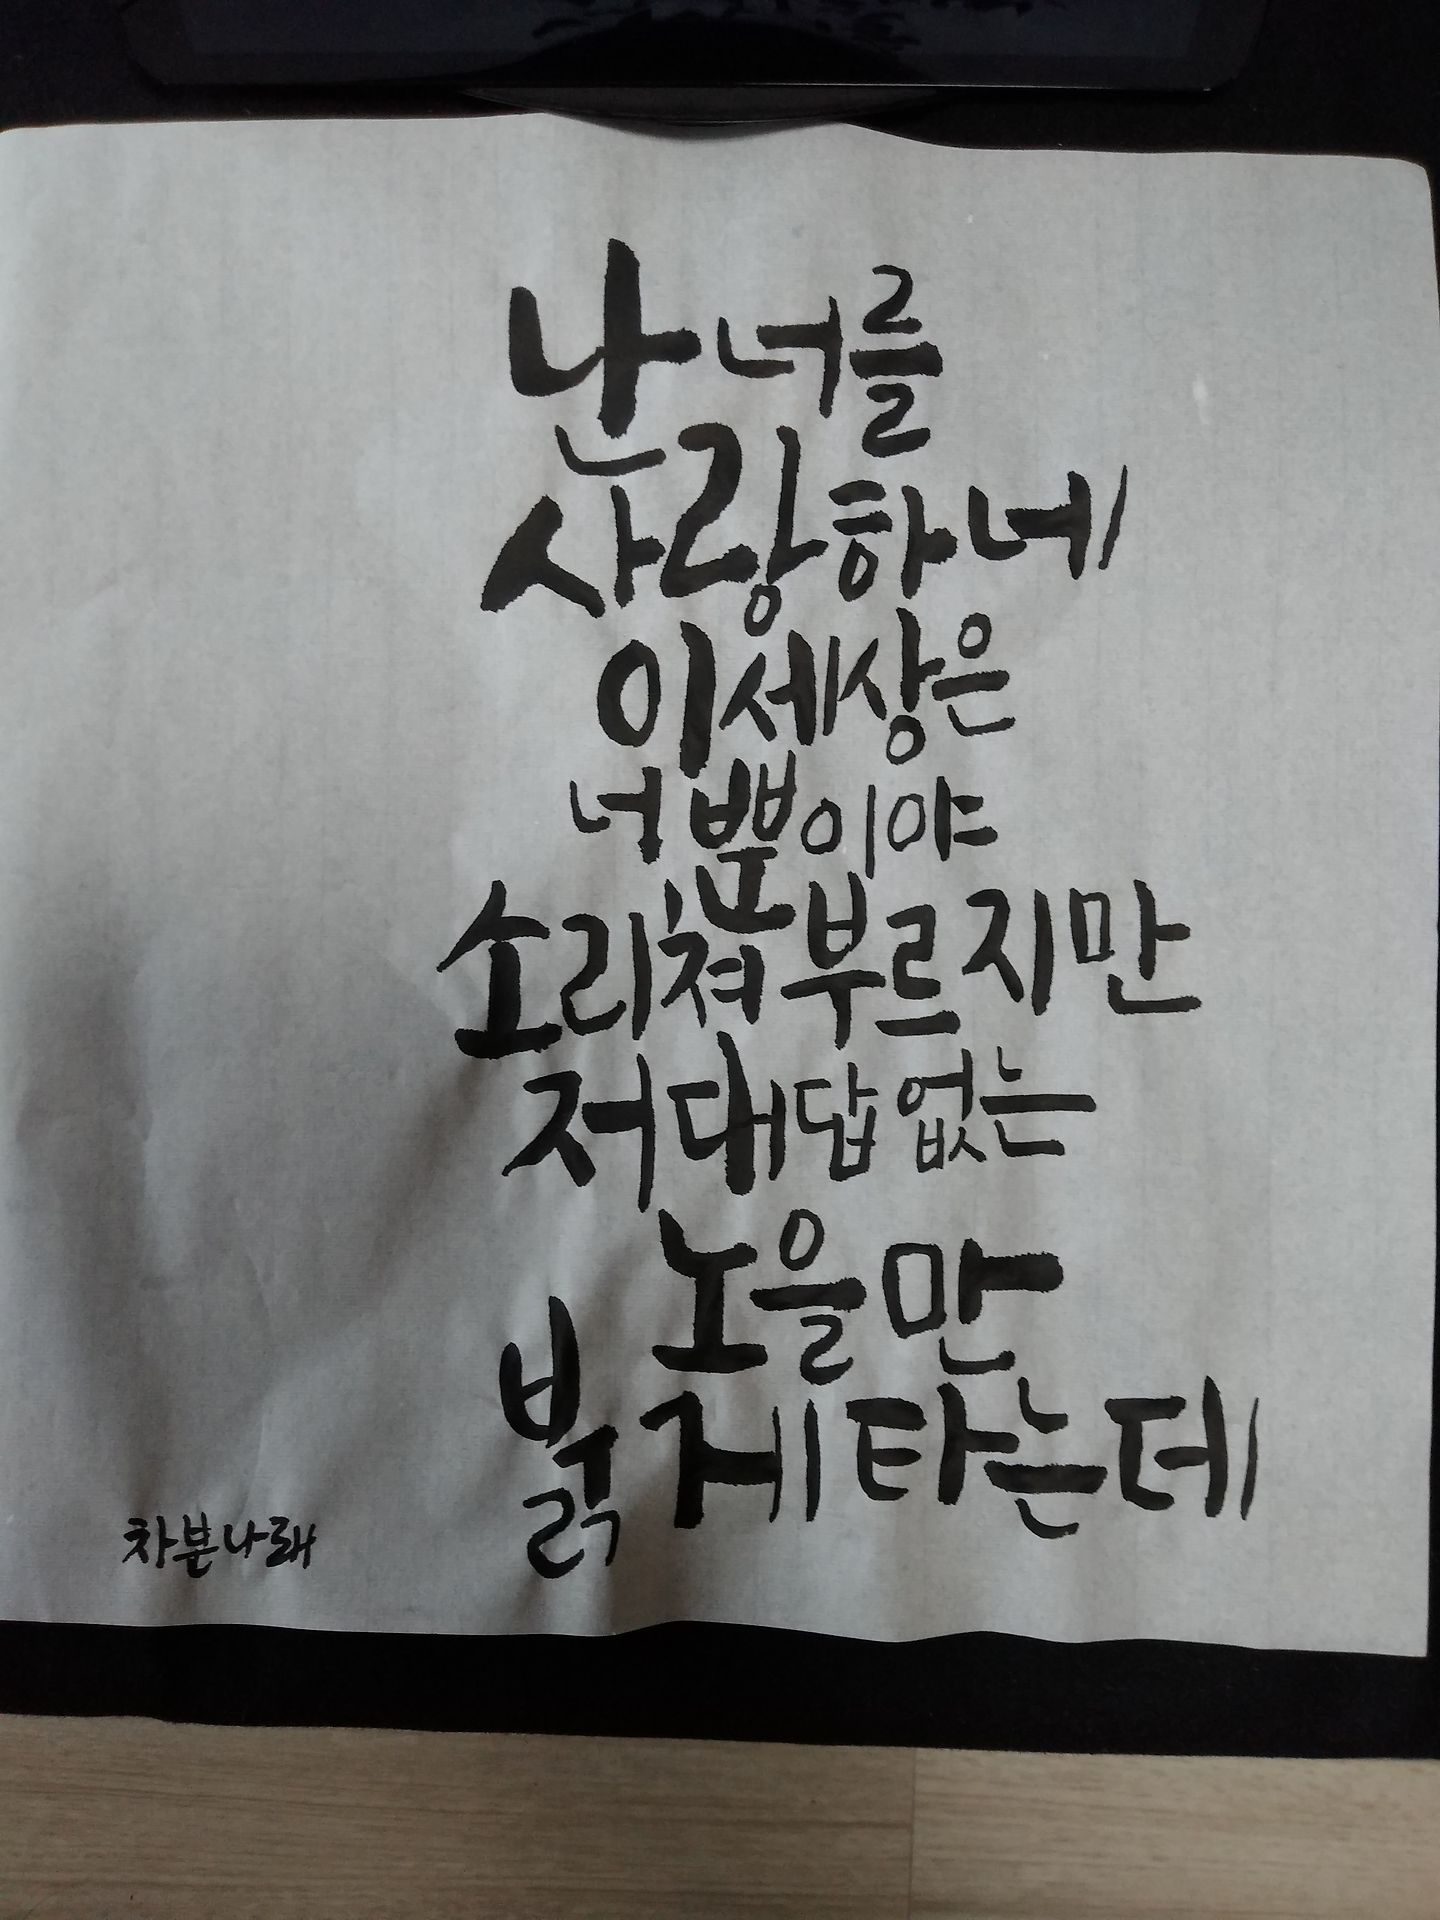 난 너를
사랑하네
이 세상은
너 뿐이야
소리쳐 부르지만
저 대답 없는
노을만
붉게 타는데
차분나래